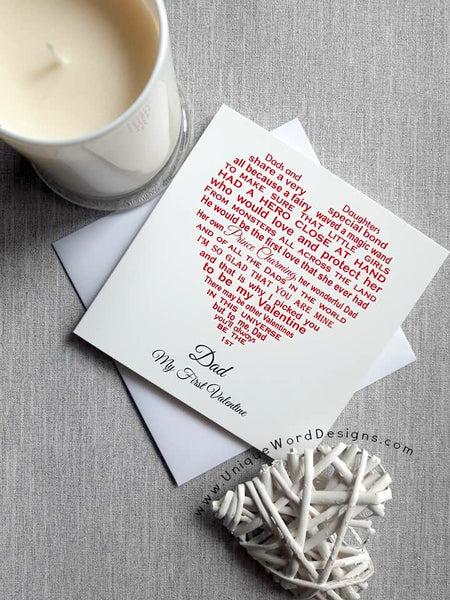 Dads and Daughters
share a very special bond
all because a fairy waved a magic wand
TO MAKE SURE THAT LITTLE GIRLS
HAD A HERO CLOSE AT HAND
who would love and protect her
FROM MONSTERS ALL ACROSS THE LAND
He would be the first love that she ever had
Her own Prince Charming, her wonderful Dad
AND OF ALL THE DADS IN THE WORLD
I'M SO GLAD THAT YOU ARE MINE
and that is why I picked you
to be my Valentine
There may be other Valentines
IN THIS UNIVERSE
but to me, Dad
you'll always
BE THE
1ST
Dad
My First Valentine
www.UniqueWordDesigns.com